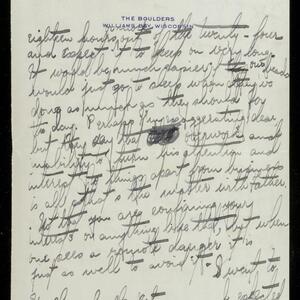 THE BOULDERS
WILLIAMS BAY, WISCONSIN
eighteen hours out of the twenty-four
and expect it to keep on very long.
It would be much happier if our heads
would just go to sleep when they've
done as much as they should for
to day. Perhaps I'm exaggerating dear
but they say that overwork and
inability to turn his attention and
interest to things apart from business
is all that's the matter with father.
Not that you are confining your
interests or anything like that, but when
one sees a remote danger it is
just as well to avoid it. I want to